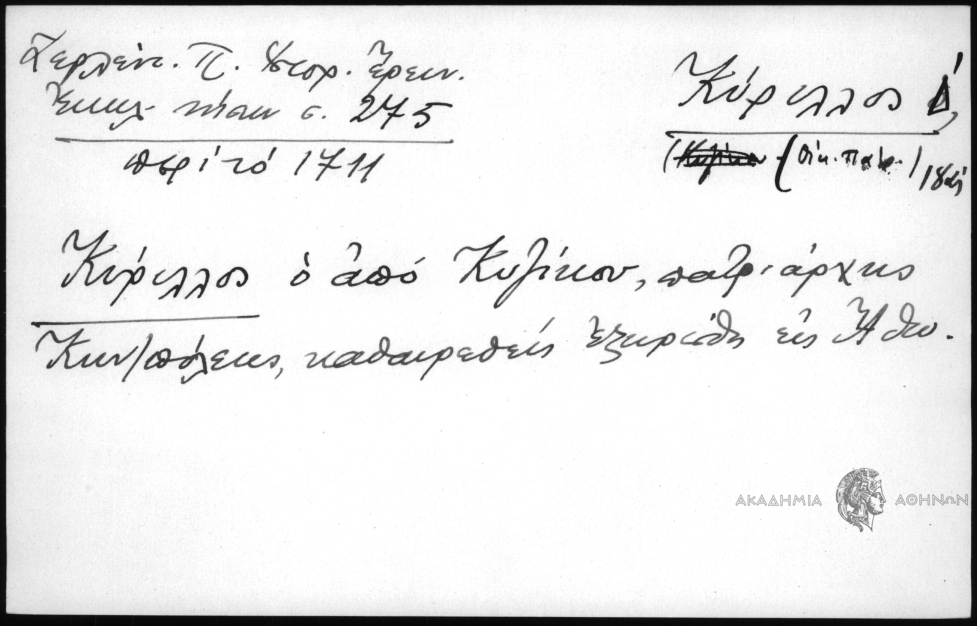 Ζερλέντ. Π. Ἱστορ. Ἔρευν.
Ἐκκλ. νήσων σ. 275
περὶ τὸ 1711
Κύριλλος Δ,
(Οἰκ. πατρ.)
Κύριλλος ὁ ἀπό Κυζίκου, πατριάρχης
Κων/πόλεως, καθαιρεθείς ἐξωρίσθη εἰς Ἄθω.
ΑΚΑΔΗΜΙΑ ΑΘΗΝΩΝ